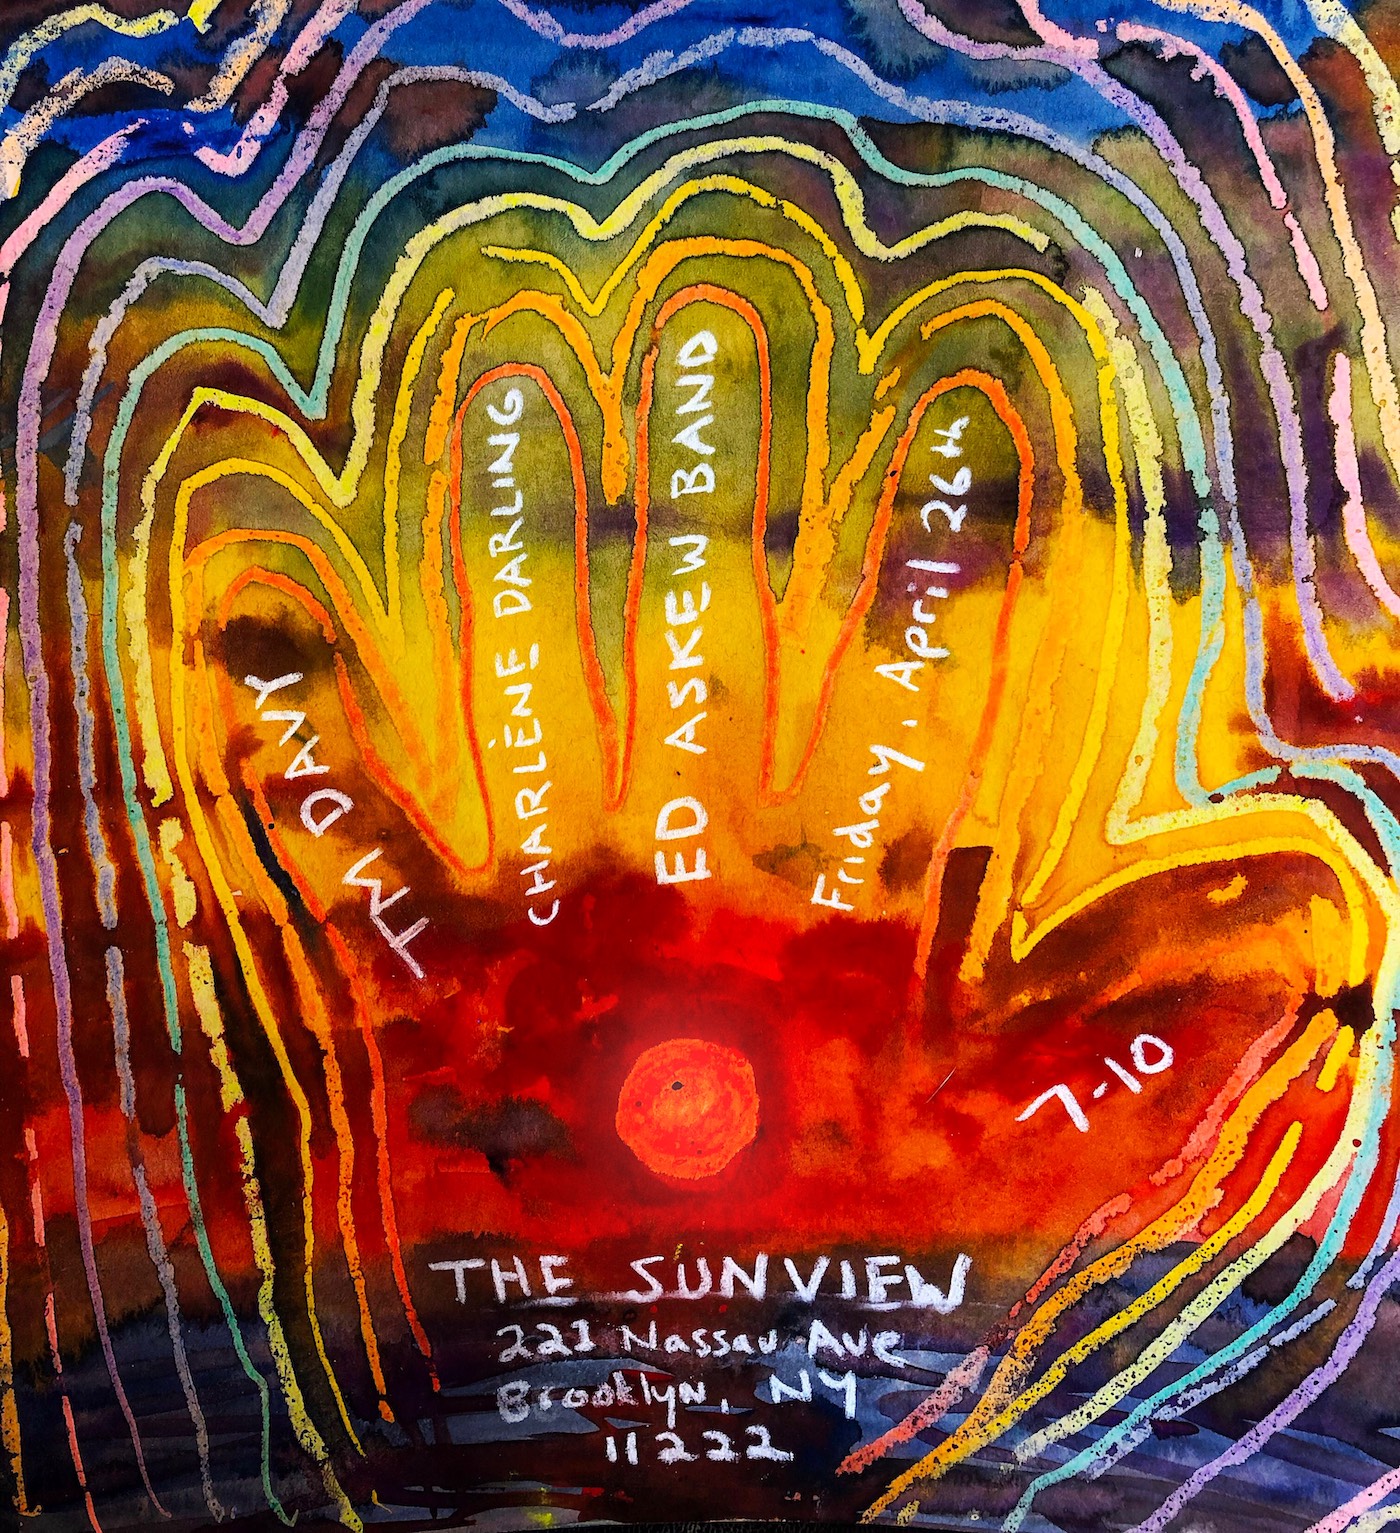 TM DAVY
CHARLÈNE DARLING
ED ASKEW BAND
Friday, April 26th
7-10
THE SUNVIEW
221 Nassau Ave
Brooklyn, NY
11222